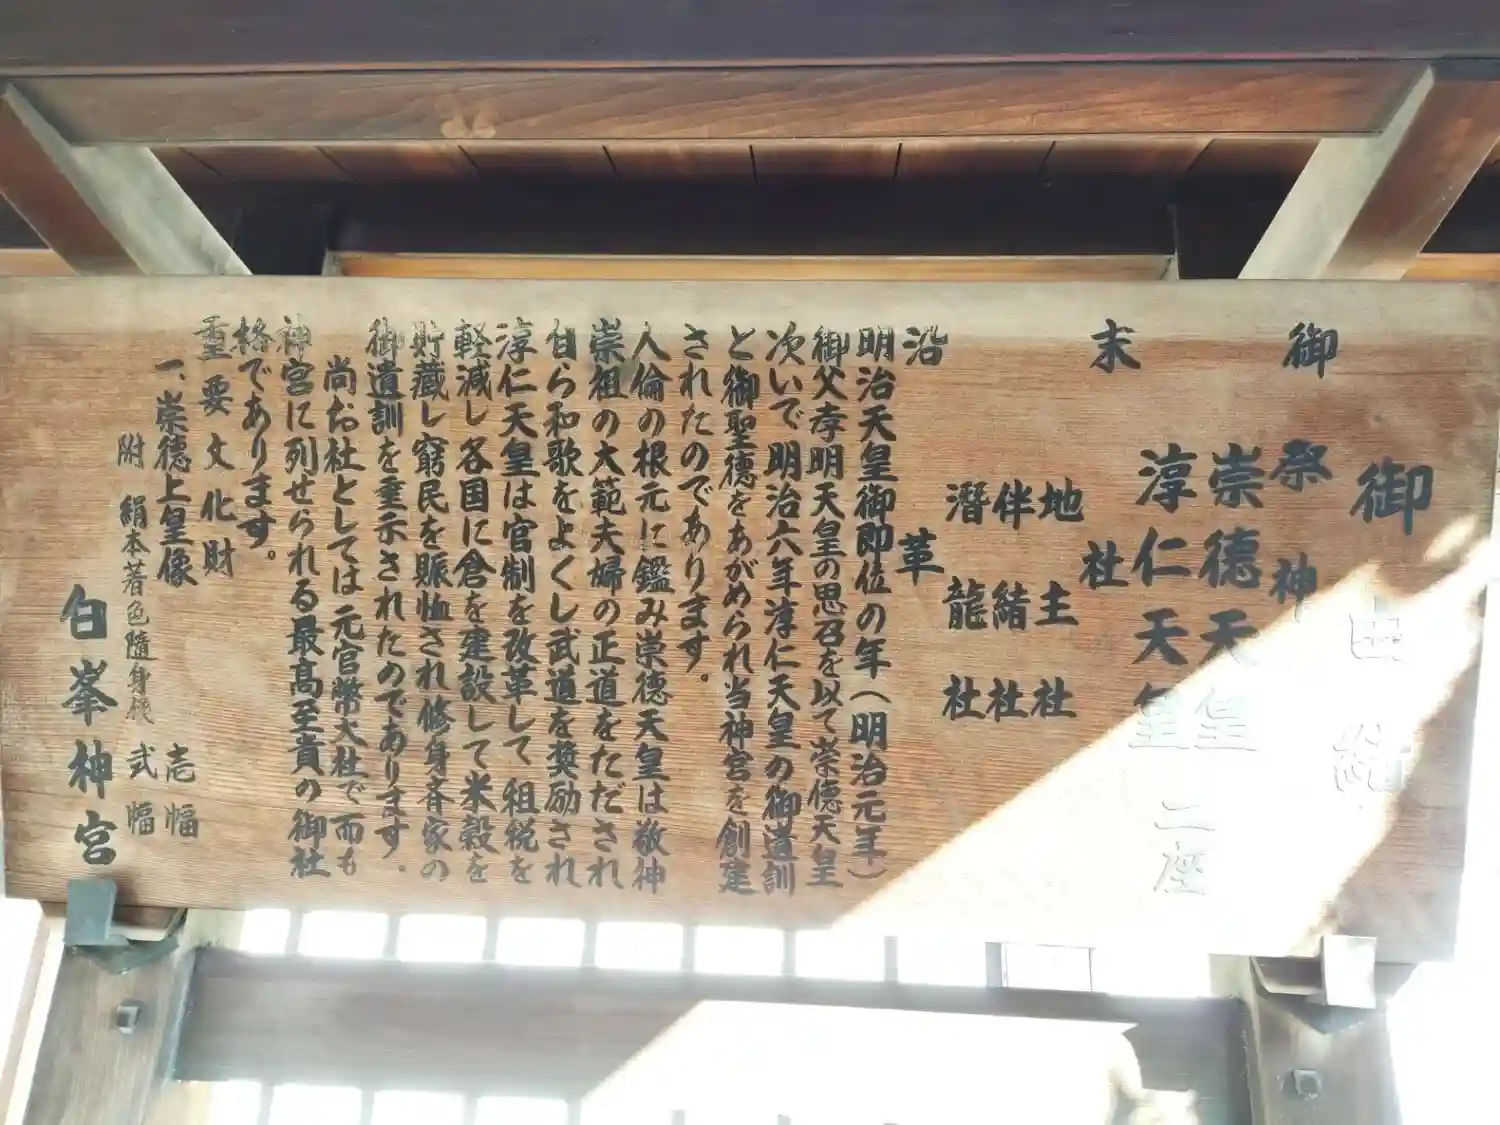 御由緒
御祭神
崇徳天皇
淳仁天皇 二座
末社
地主社
伴緒社
潛龍社
沿革
明治天皇御即位の年(明治元年)
御父孝明天皇の思召を以て崇徳天皇
次いで明治六年淳仁天皇の御遺訓
と御聖德をあがめられ当神宮を創建
されたのであります。
人倫の根元に鑑み崇徳天皇は敬神
崇祖の大範夫婦の正道をたゞされ
自ら和歌をよくし武道を奬励され
淳仁天皇は官制を改革して租税を
軽減し各国に倉を建設して米穀を
貯蔵し窮民を賑恤され修身斉家の
御遺訓を垂示されたのであります。
尚お社としては元官幣大社で而も
神宮に列せられる最高至貴の御社
格であります。
重要文化財
一、崇徳上皇像 壱幅
附 絹本著色隨身 弐幅
白峯神宮